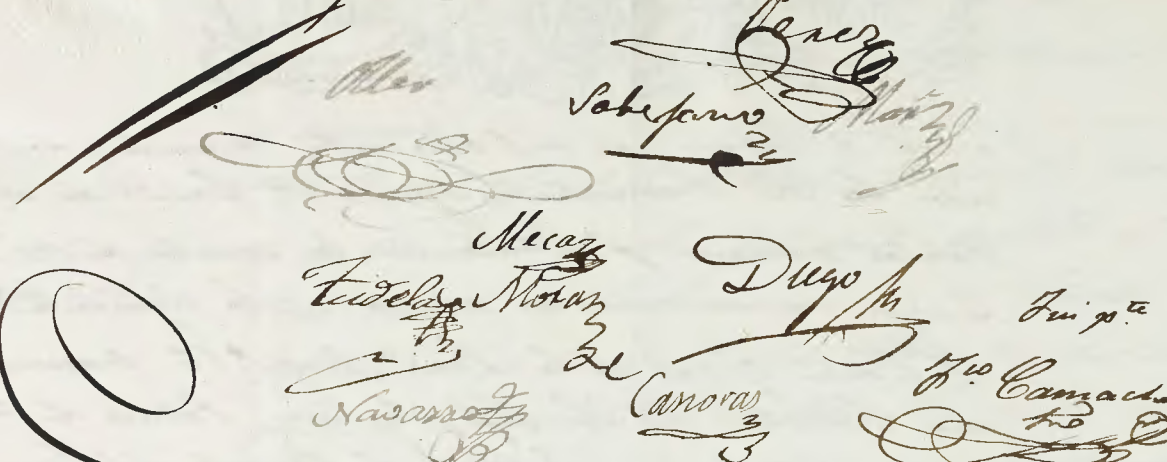 Perez
Oller
Sobejano
Muñ
Meca
Tudela Moran
Diego
Fui pte
Navarro
Canovas
Fco Camacho